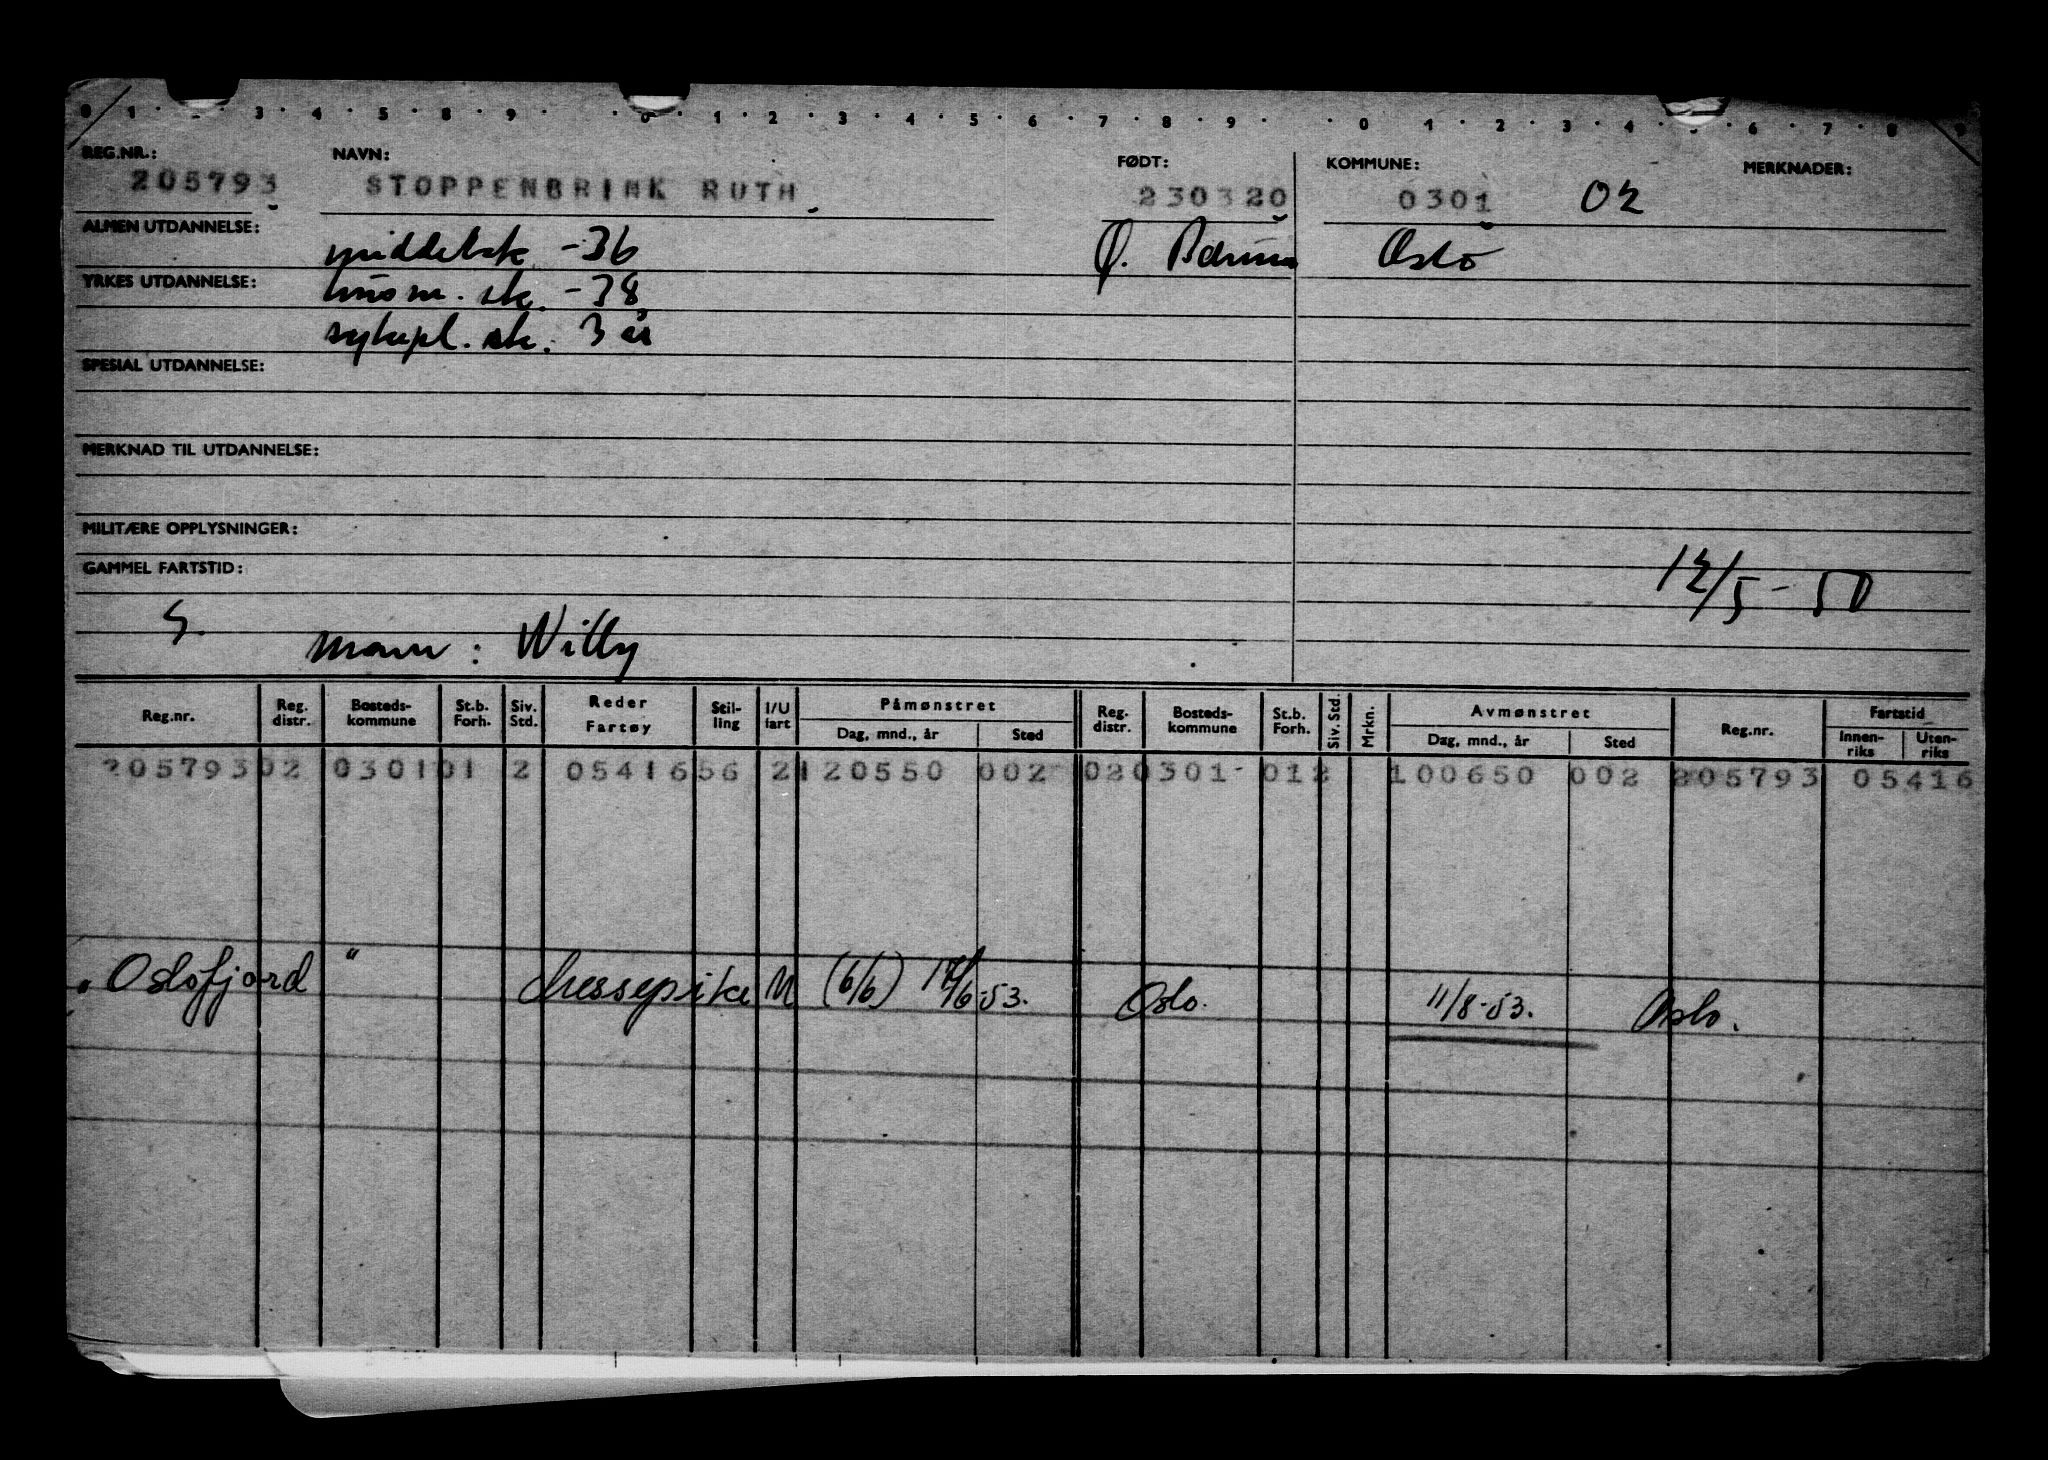 0 1 · · 3 · 4 · 5 · 8 · 9 · · 0 · 1 · 2 · 3 · 4 · 5 · 6 · 7 · 8 · 9 · · 0 · 1 · 2 · 3 · 4 · 5 · 6 · 7 · 8 · 9
REG.NR.: NAVN: FØDT: KOMMUNE: MERKNADER:
205793 STOPPENBRINK RUTH 230320 0301 02
ALMEN UTDANNELSE: middelsk -36 Ø. Oslo
YRKES UTDANNELSE: husm. sk. -38
sykepl. sk. 3 år
SPESIAL UTDANNELSE:
MERKNAD TIL UTDANNELSE:
MILITÆRE OPPLYSNINGER:
GAMMEL FARTSTID: 12/5-50
G. Mann: Willy
Reg.nr. Reg. distr. Bosteds-kommune St.b. Forh. Siv. Std. Reder Fartøy Stil-ling I/U fart Påmønstret Dag, mnd., år Sted Reg. distr. Bosteds-kommune St.b. Forh. Siv. Std. Mrkn. Avmønstret Dag, mnd., år Sted Reg.nr. Fartstid Innen-riks Uten-riks
205793 02 0301 01 2 05416 56 2 120550 002 02 0301- 01 2 100650 002 205793 05416
"Oslofjord" Messepike U (6/6) 17/6-53. Oslo. 11/8-53. Oslo.